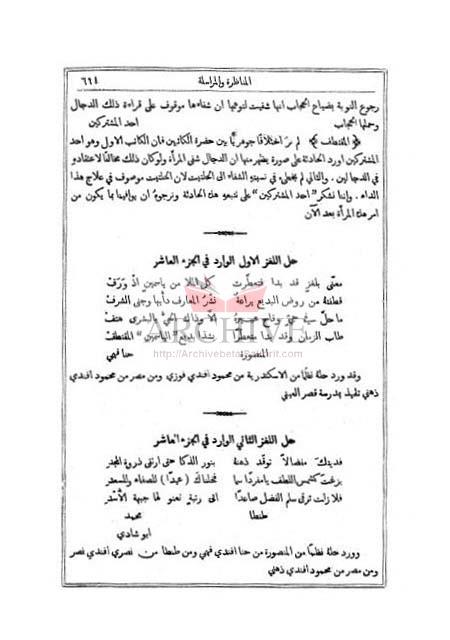 المناظرة والمراسلة ٦٢٤
رجوع النوبة بضياع الحجاب انها شفيت لتوهمها ان شفاءها موقوف على قراءة ذلك الدجال
وحملها الحجاب احد المشتركين
﴿ المقتطف ﴾ لم نرَ اختلافًا جوهريًّا بين حضرة الكاتبين فان الكاتب الاول وهو احد
المشتركين اورد الحادثة على صورة يظهر منها ان الدجال شفى المرأة ولو كان ذلك مخالفًا لاعتقادهِ
في الدجالين. والتالي لم يخطئ في نسبتهِ الشفاء الى الحلتيت لان الحلتيت موصوف في علاج هذا
الداء. واننا نشكر "احد المشتركين" على تتبعهِ هذه الحادثة ونرجوهُ ان يوافينا بما يكون من
امر هذه المرأة بعد الآن
حل اللغز الاول الوارد في الجزء العاشر
معنّى بلغز قد بدا فتعطّرت كل الملا من ياسمين اذ وَرَفْ
قطفتهُ من روض البديع براعة نشرُ المعارف دأبها وجنى الشرف
ما حلّ في حيّ وفاح عبيره الّا وذاك الحيّ بالبشرى هتف
طاب الزمان وقد بدا متعطرًا بشذا بديع "الياسمين" المقتطف
المنصورة حنا فهمي
ARCHIVE
http://Archivebeta.Sakhrit.com
وقد ورد حلهُ نظمًا من الاسكندرية من محمود افندي فوزي ومن مصر من محمود افندي
ذهني تلميذ بمدرسة قصر العيني
حل اللغز الثاني الوارد في الجزء العاشر
فديتك مفضالًا توقد ذهنهُ بنور الذكا حتى ارتقى ذروة المجد
بزغت كشمس اللطف يا مفردًا سما فخلناك (عبدًا) للصفاء وللسعد
فلا زلت ترقى سلم الفضل صاعدًا الى رتبةٍ تعنو لها جبهة الأسد
طنطا محمد
ابو شادي
وورد حلهُ نظمًا من المنصورة من حنا افندي فهمي ومن طنطا من نصري افندي نصر
ومن مصر من محمود افندي ذهني